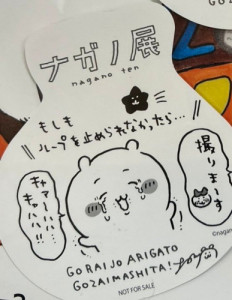 ナガノ展
nagano ten
もしも
ループを止められなかったら…
撮りまーす
キャァーハハ
キャハハ!!
GO RAIJO ARIGATO
GOZAIMASHITA!
NOT FOR SALE
©nagano